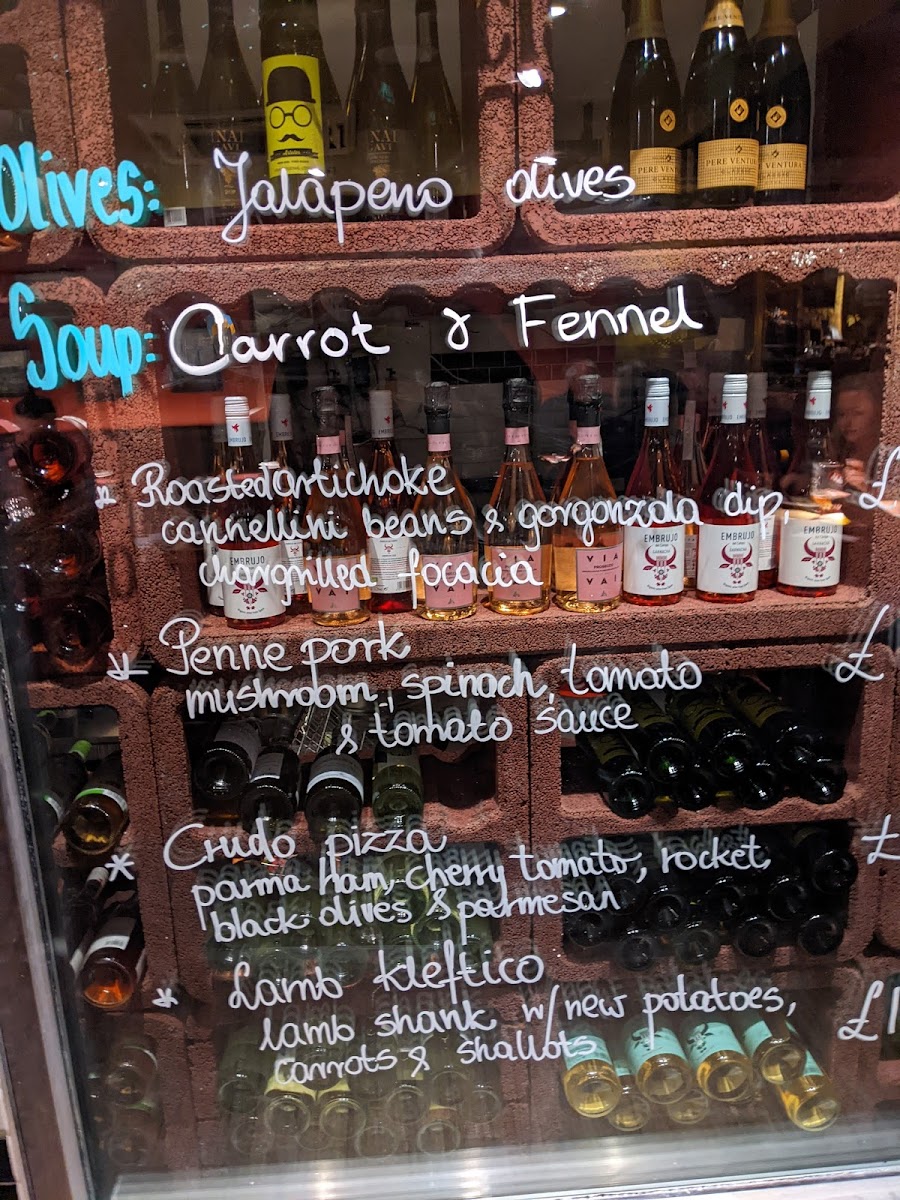 PERE VENTURA
PERE VENTURA
PERE VENTURA
Olives: Jalàpeno olives
Soup: Carrot & Fennel
* Roasted artichoke £
cannellini beans & gorgonzola dip
chargrilled focacia
EMBRUJO
EMBRUJO
EMBRUJO
EMBRUJO
VIA
VAI
* Penne pork £
mushroom, spinach, tomato
& tomato sauce
* Crudo pizza £
parma ham, cherry tomato, rocket,
black olives & parmesan
* Lamb kleftico
lamb shank w/ new potatoes, £1
carrots & shallots